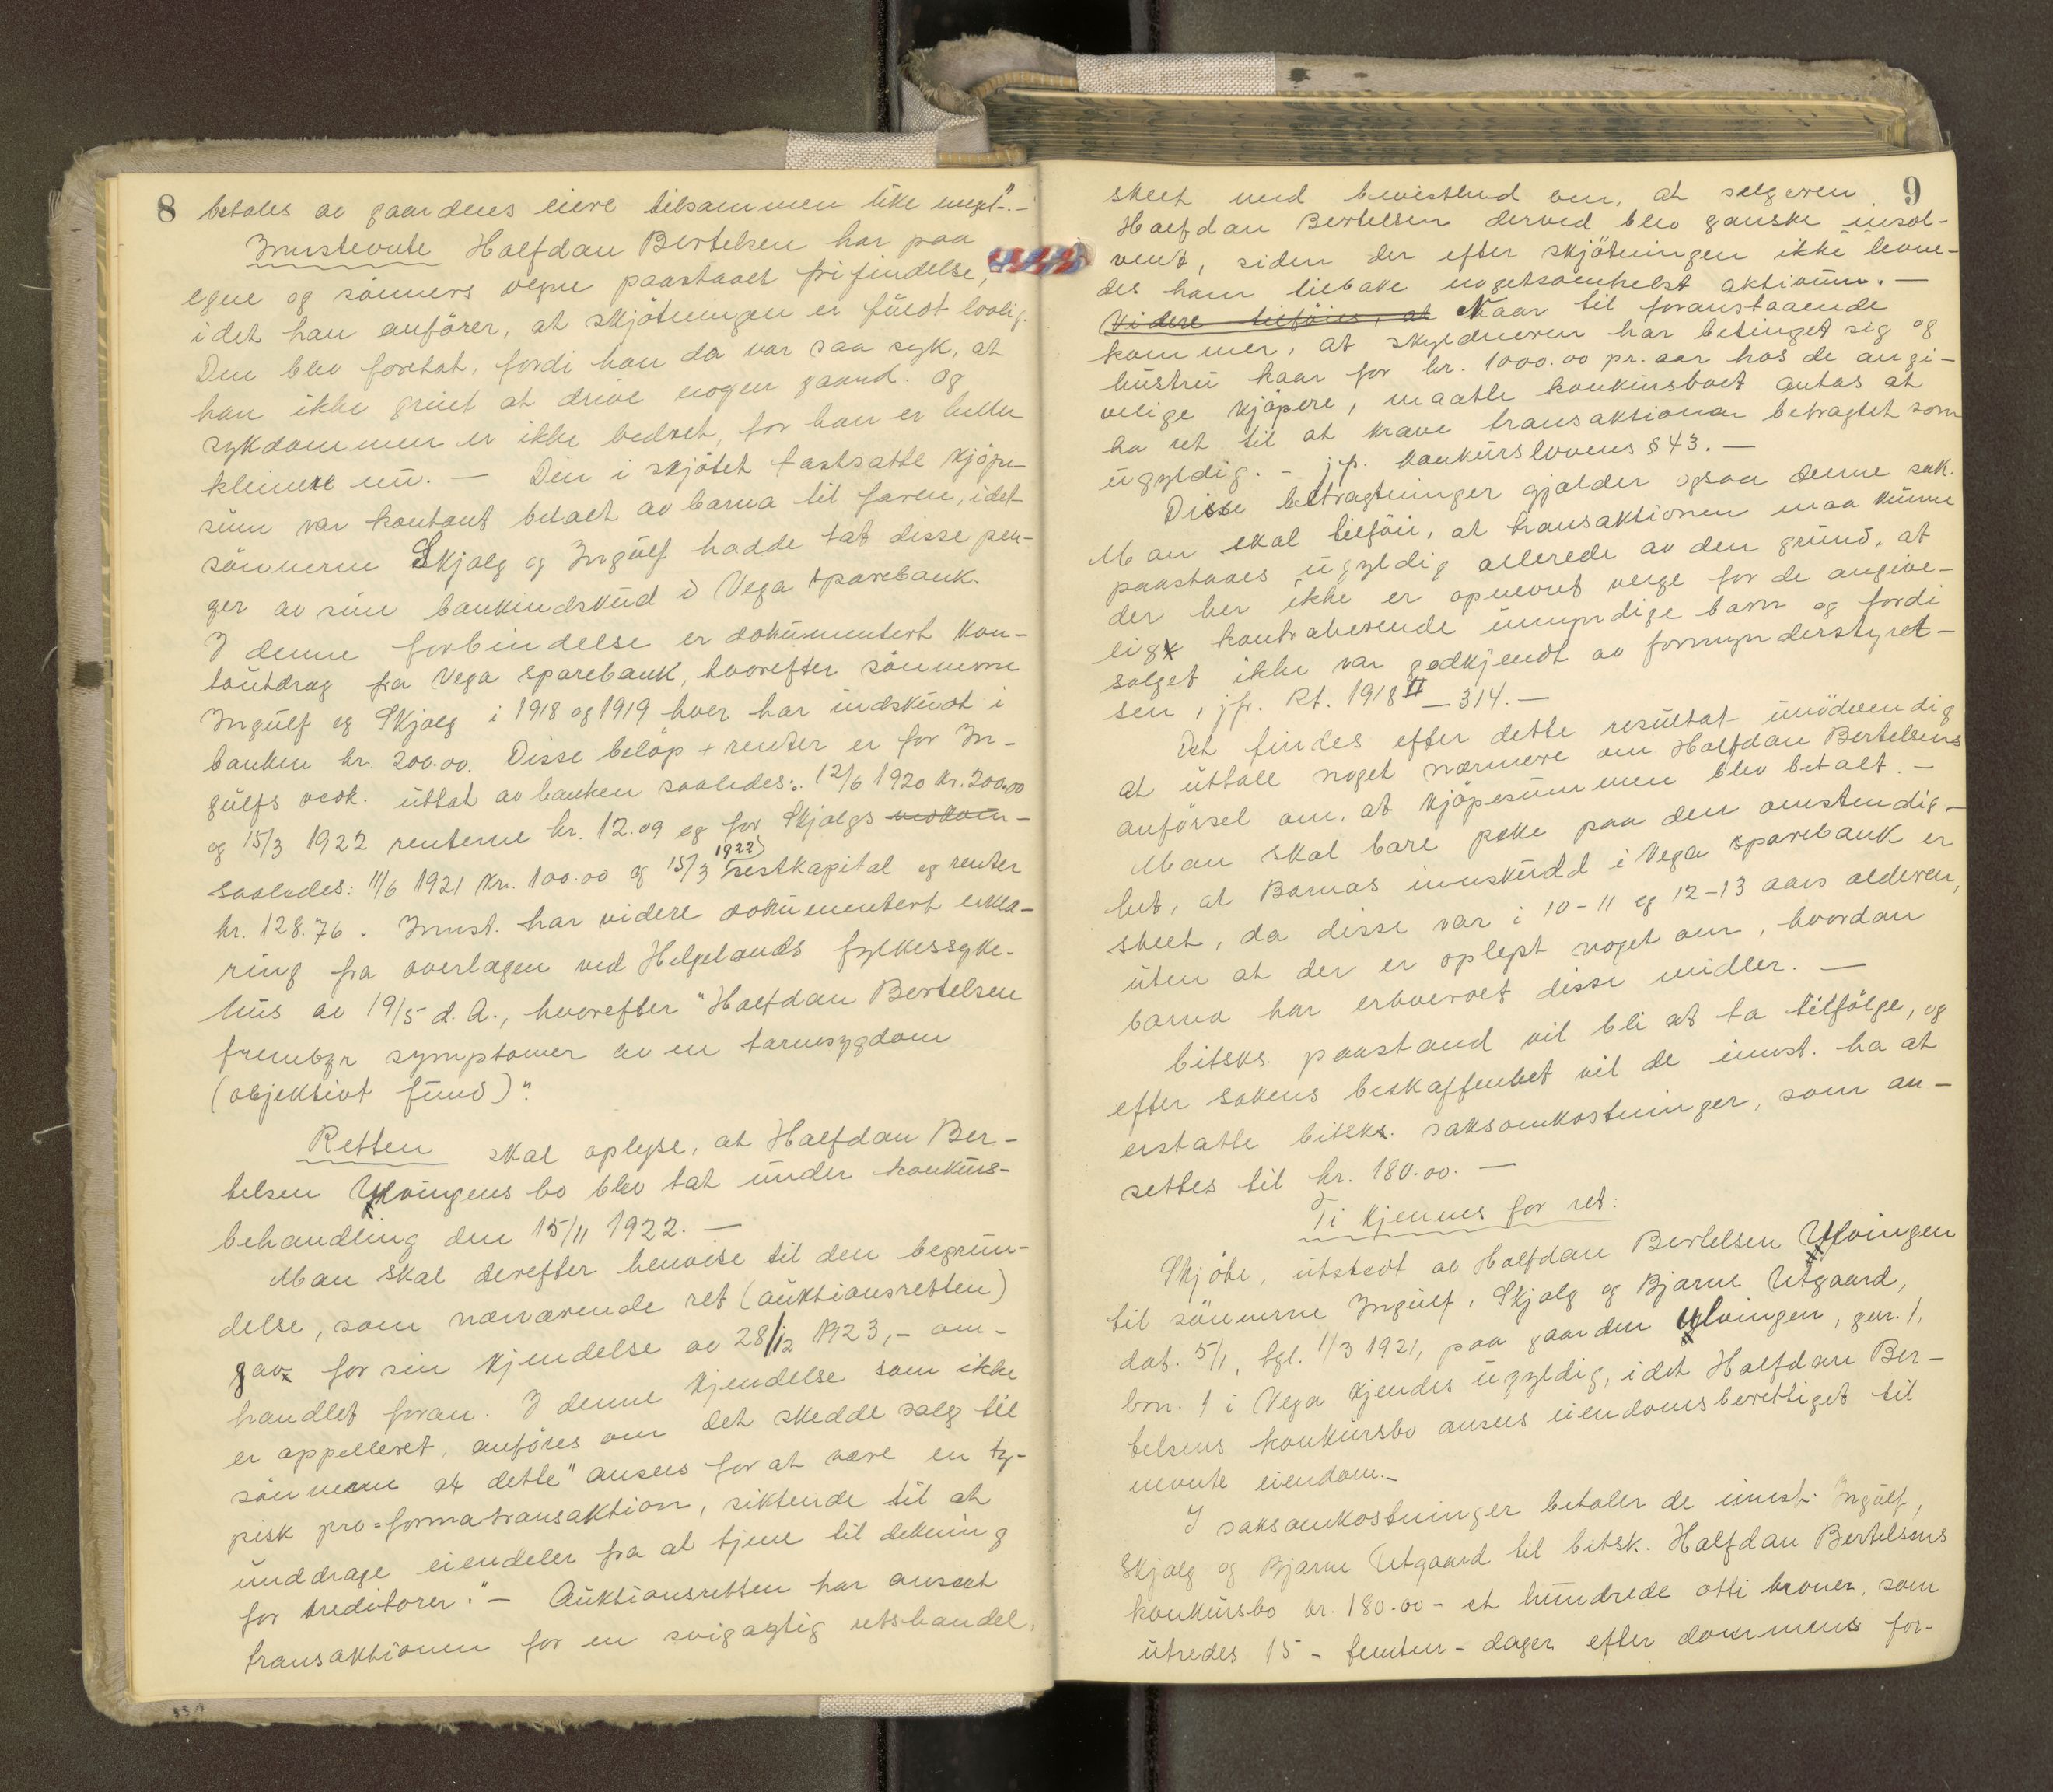 8
betales av gaardens eiere tilsammen like meget".-
Innstevnte Halfdan Bertelsen har paa
egne og sønners vegne paastaaet frifindelse,
idet han anfører, at skjøtningen er fuldt lovlig.
Den blev foretat, fordi han da var saa syk, at
han ikke griet at drive nogen gaard. og
sykdommen er ikke bedret, for han er heller
klenere nu. — Den i skjøtet fastsatte kjøpe-
sum var kontant betalt av barna til faren, idet
sønnerne Skjalg og Ingulf hadde tat disse pen-
ger av sine bankindskud i Vega sparebank.
I denne forbindelse er dokumentert kon-
toutdrag fra Vega sparebank, hvorefter sønnerne
Ingulf og Skjalg i 1918 og 1919 hver har indskudt i
banken kr. 200.00. Disse beløp + renter er for In-
gulfs vedk. uttat av banken saaledes: 12/6 1920 kr. 200.00
og 15/3 1922 renterne kr. 12.09 og for Skjalgs vedkom-
saaledes: 11/6 1921 kr. 100.00 og 15/3 1922 restkapital og renter
kr. 128.76. Innst. har videre dokumentert erklæ-
ring fra overlægen ved Helgelands fylkessyke-
hus av 19/5 d. A., hvorefter "Halfdan Bertelsen
frembyr symptomer av en tarmsygdom
(objektivt fund)".
Retten skal oplyse, at Halfdan Ber-
telsen Ylvingens bo blev tat under konkurs-
behandling den 15/11 1922. —
Man skal derefter henvise til den begrun-
delse, som nærværende ret (auktionsretten)
gav for sin kjendelse av 28/12 1923,- om-
handlet foran. I denne kjendelse som ikke
er appelleret, anføres om det skedde salg til
sønnerne at dette "ansees for at være en ty-
pisk pro-forma transaktion, siktende til at
unddrage eiendeler fra at tjene til dekning
for kreditorer." — Auktionsretten har anseet
transaktionen for en svigagtig retshandel,
9
skeet med bevisthed om, at selgeren
Halfdan Bertelsen derved blev ganske insol-
vent, siden der efter skjøtningen ikke levne-
des ham tilbake nogetsomhelst aktivum. —
Videre tilføies, at Naar til foranstaaende
kommer, at skyldneren har betinget sig og
hustru kaar for kr. 1000.00 pr. aar hos de angi-
velige kjøpere, maatte konkursboet antas at
ha ret til at kræve transaktionen betragtet som
ugyldig. - jfr. konkurslovens § 43. —
Disse betragtninger gjælder ogsaa denne sak.
Man skal tilføie, at transaktionen maa kunne
paastaaes ugyldig allerede av den grund, at
der her ikke er opnevnt verge for de angive-
lig kontraherende umyndige barn og fordi
salget ikke var godkjendt av formynderstyret-
sen, jfr. Rt. 1918 II — 314. —
Det findes efter dette resultat unødvendig
at uttale noget nærmere om Halfdan Bertelsens
anførsel om, at kjøpesummen blev betalt. —
Man skal bare peke paa den omstendig-
het, at Barnas innskudd i Vega sparebank er
skeet, da disse var i 10-11 og 12-13 aars alderen,
uten at der er oplyst noget om, hvordan
barna har erhvervet disse midler. —
Citsks. paastand vil bli at ta tilfølge, og
efter sakens beskaffenhet vil de innst. ha at
erstatte citsks. saksomkostninger, som an-
settes til kr. 180.00. —
Ti kjennes for ret:
Skjøte, utstedt av Halfdan Bertelsen Ylvingen
til sønnerne Ingulf, Skjalg og Bjarne Utgaard,
dat. 5/1, tgl. 1/3 1921, paa gaarden Ylvingen, gnr. 1,
brn. 1 i Vega kjendes ugyldig, idet Halfdan Ber-
telsens konkursbo ansees eiendomsberettiget til
nevnte eiendom.-
I saksomkostninger betaler de innst. Ingulf,
Skjalg og Bjarne Utgaard til citsk. Halfdan Bertelsens
konkursbo kr. 180.00 - et hundrede otti kroner, som
utredes 15 - femten - dager efter dommens for-